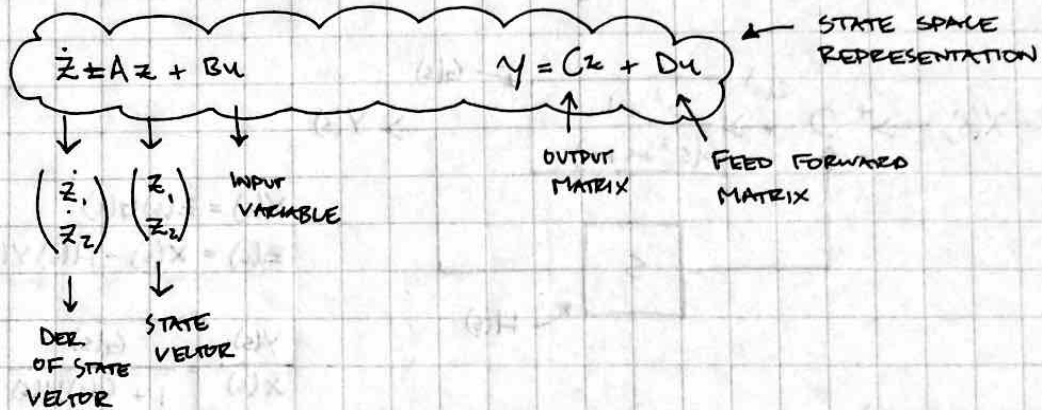 ż = Az + Bu
y = Cz + Du
STATE SPACE
REPRESENTATION
(ż₁
ż₂)
(z₁
z₂)
INPUT
VARIABLE
OUTPUT
MATRIX
FEED FORWARD
MATRIX
DER.
OF STATE
VECTOR
STATE
VECTOR